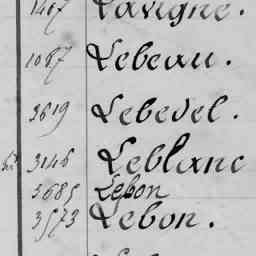 1467 Lavigne.
1087 Lebeau.
3619 Lebedel.
3146 Leblanc
3685 Lebon
3573 Lebon.